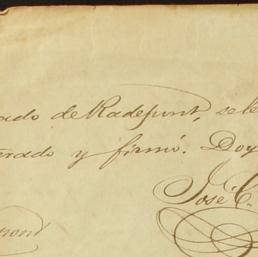 ado de Radepont, se le
erado y firmó. Doy
José C.
pont